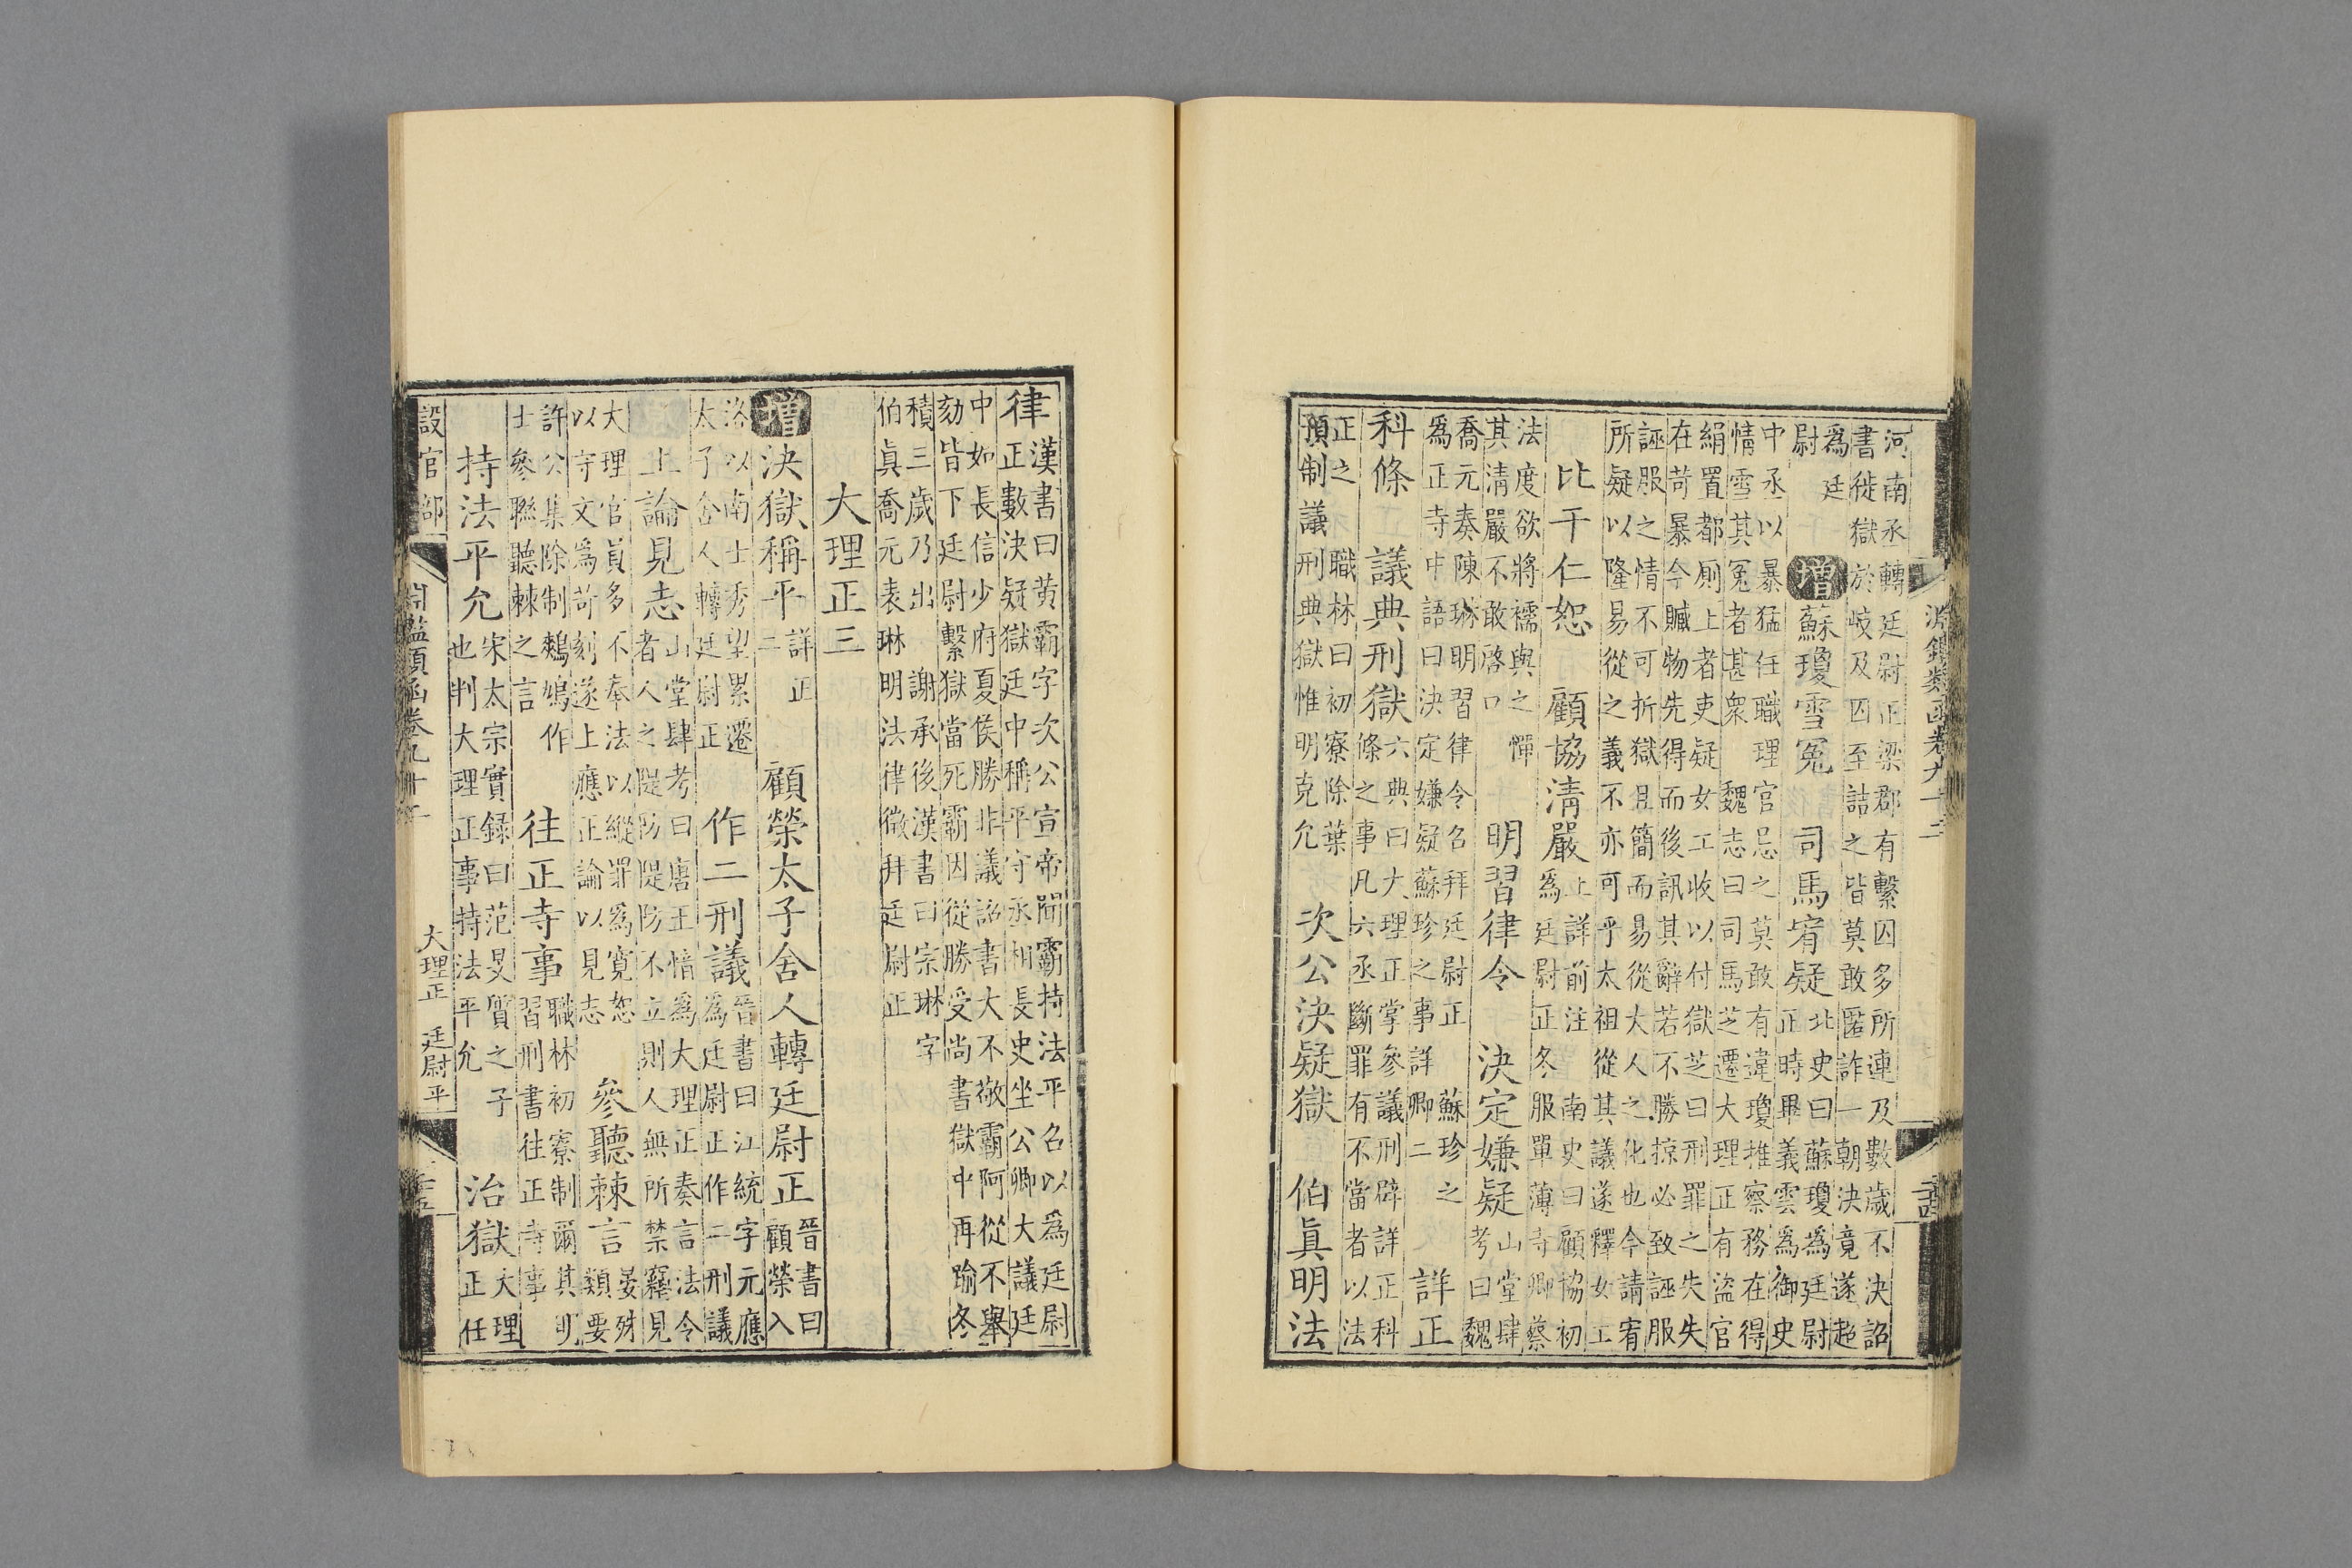 淵鑑類函卷九十二
河南丞轉廷尉正梁郡有繫囚多所連及數歲不決詔
書徙獄於岐及囚至詰之皆莫敢匿詐一朝決竟遂超
為廷
尉
增 蘇瓊雪冤 司馬宥疑
北史曰蘇瓊為廷尉
正時畢義雲為御史
中丞以暴猛任職理官忌之莫敢有違瓊推察務在得
情雪其冤者甚衆 魏志曰司馬芝遷大理正有盜官
絹置都厠上者吏疑女工收以付獄芝曰刑罪之失失
在苛暴今贓物先得而後訊其辭若不勝掠必致誣服
誣服之情不可折獄且簡而易從大人之化也今請宥
所疑以隆易從之義不亦可乎太祖從其議遂釋女工
比干仁恕 顧協清嚴
上詳前注 南史曰顧協初
為廷尉正冬服單薄寺卿蔡
法度欲將襦與之憚
其清嚴不敢啓口
明習律令 決定嫌疑
山堂肆
考曰魏
喬元奏陳琳明習律令名拜廷尉正 蘇珍之
為正寺中語曰決定嫌疑蘇珍之事詳卿二
詳正
科條 議典刑獄
六典曰大理正掌參議刑辟詳正科
條之事凡六丞斷罪有不當者以法
正之 職林曰初寮除葉
預制議刑典獄惟明克允
次公決疑獄 伯眞明法
律
漢書曰黄霸字次公宣帝聞霸持法平召以為廷尉
正數決疑獄廷中稱平守丞相長史坐公卿大議廷
中如長信少府夏侯勝非議詔書大不敬霸阿從不舉
劾皆下廷尉繫獄當死霸因從勝受尚書獄中再踰冬
積三歲乃出 謝承後漢書曰宗琳字
伯眞喬元表琳明法律徵拜廷尉正
大理正三
增 決獄稱平
詳正
二
顧榮太子舍人轉廷尉正
晉書曰
顧榮入
洛以南士秀望累遷
太子舍人轉廷尉正
作二刑議
晉書曰江統字元應
為廷尉正作二刑議
上論見志
山堂肆考曰唐王愔為大理正奏言法令
者人之隄防隄防不立則人無所禁竊見
大理官員多不奉法以縱罪為寬恕
以守文為苛刻遂上應正論以見志
參聽棘言
晏殊
類要
許公集除制鷞鳩作
士參聯聽棘之言
往正寺事
職林初寮制爾其明
習刑書往正寺事
持法平允
宋太宗實錄曰范旻質之子
也判大理正事持法平允
治獄
大理
正任
設官部 淵鑑類函卷九十二 大理正 廷尉平